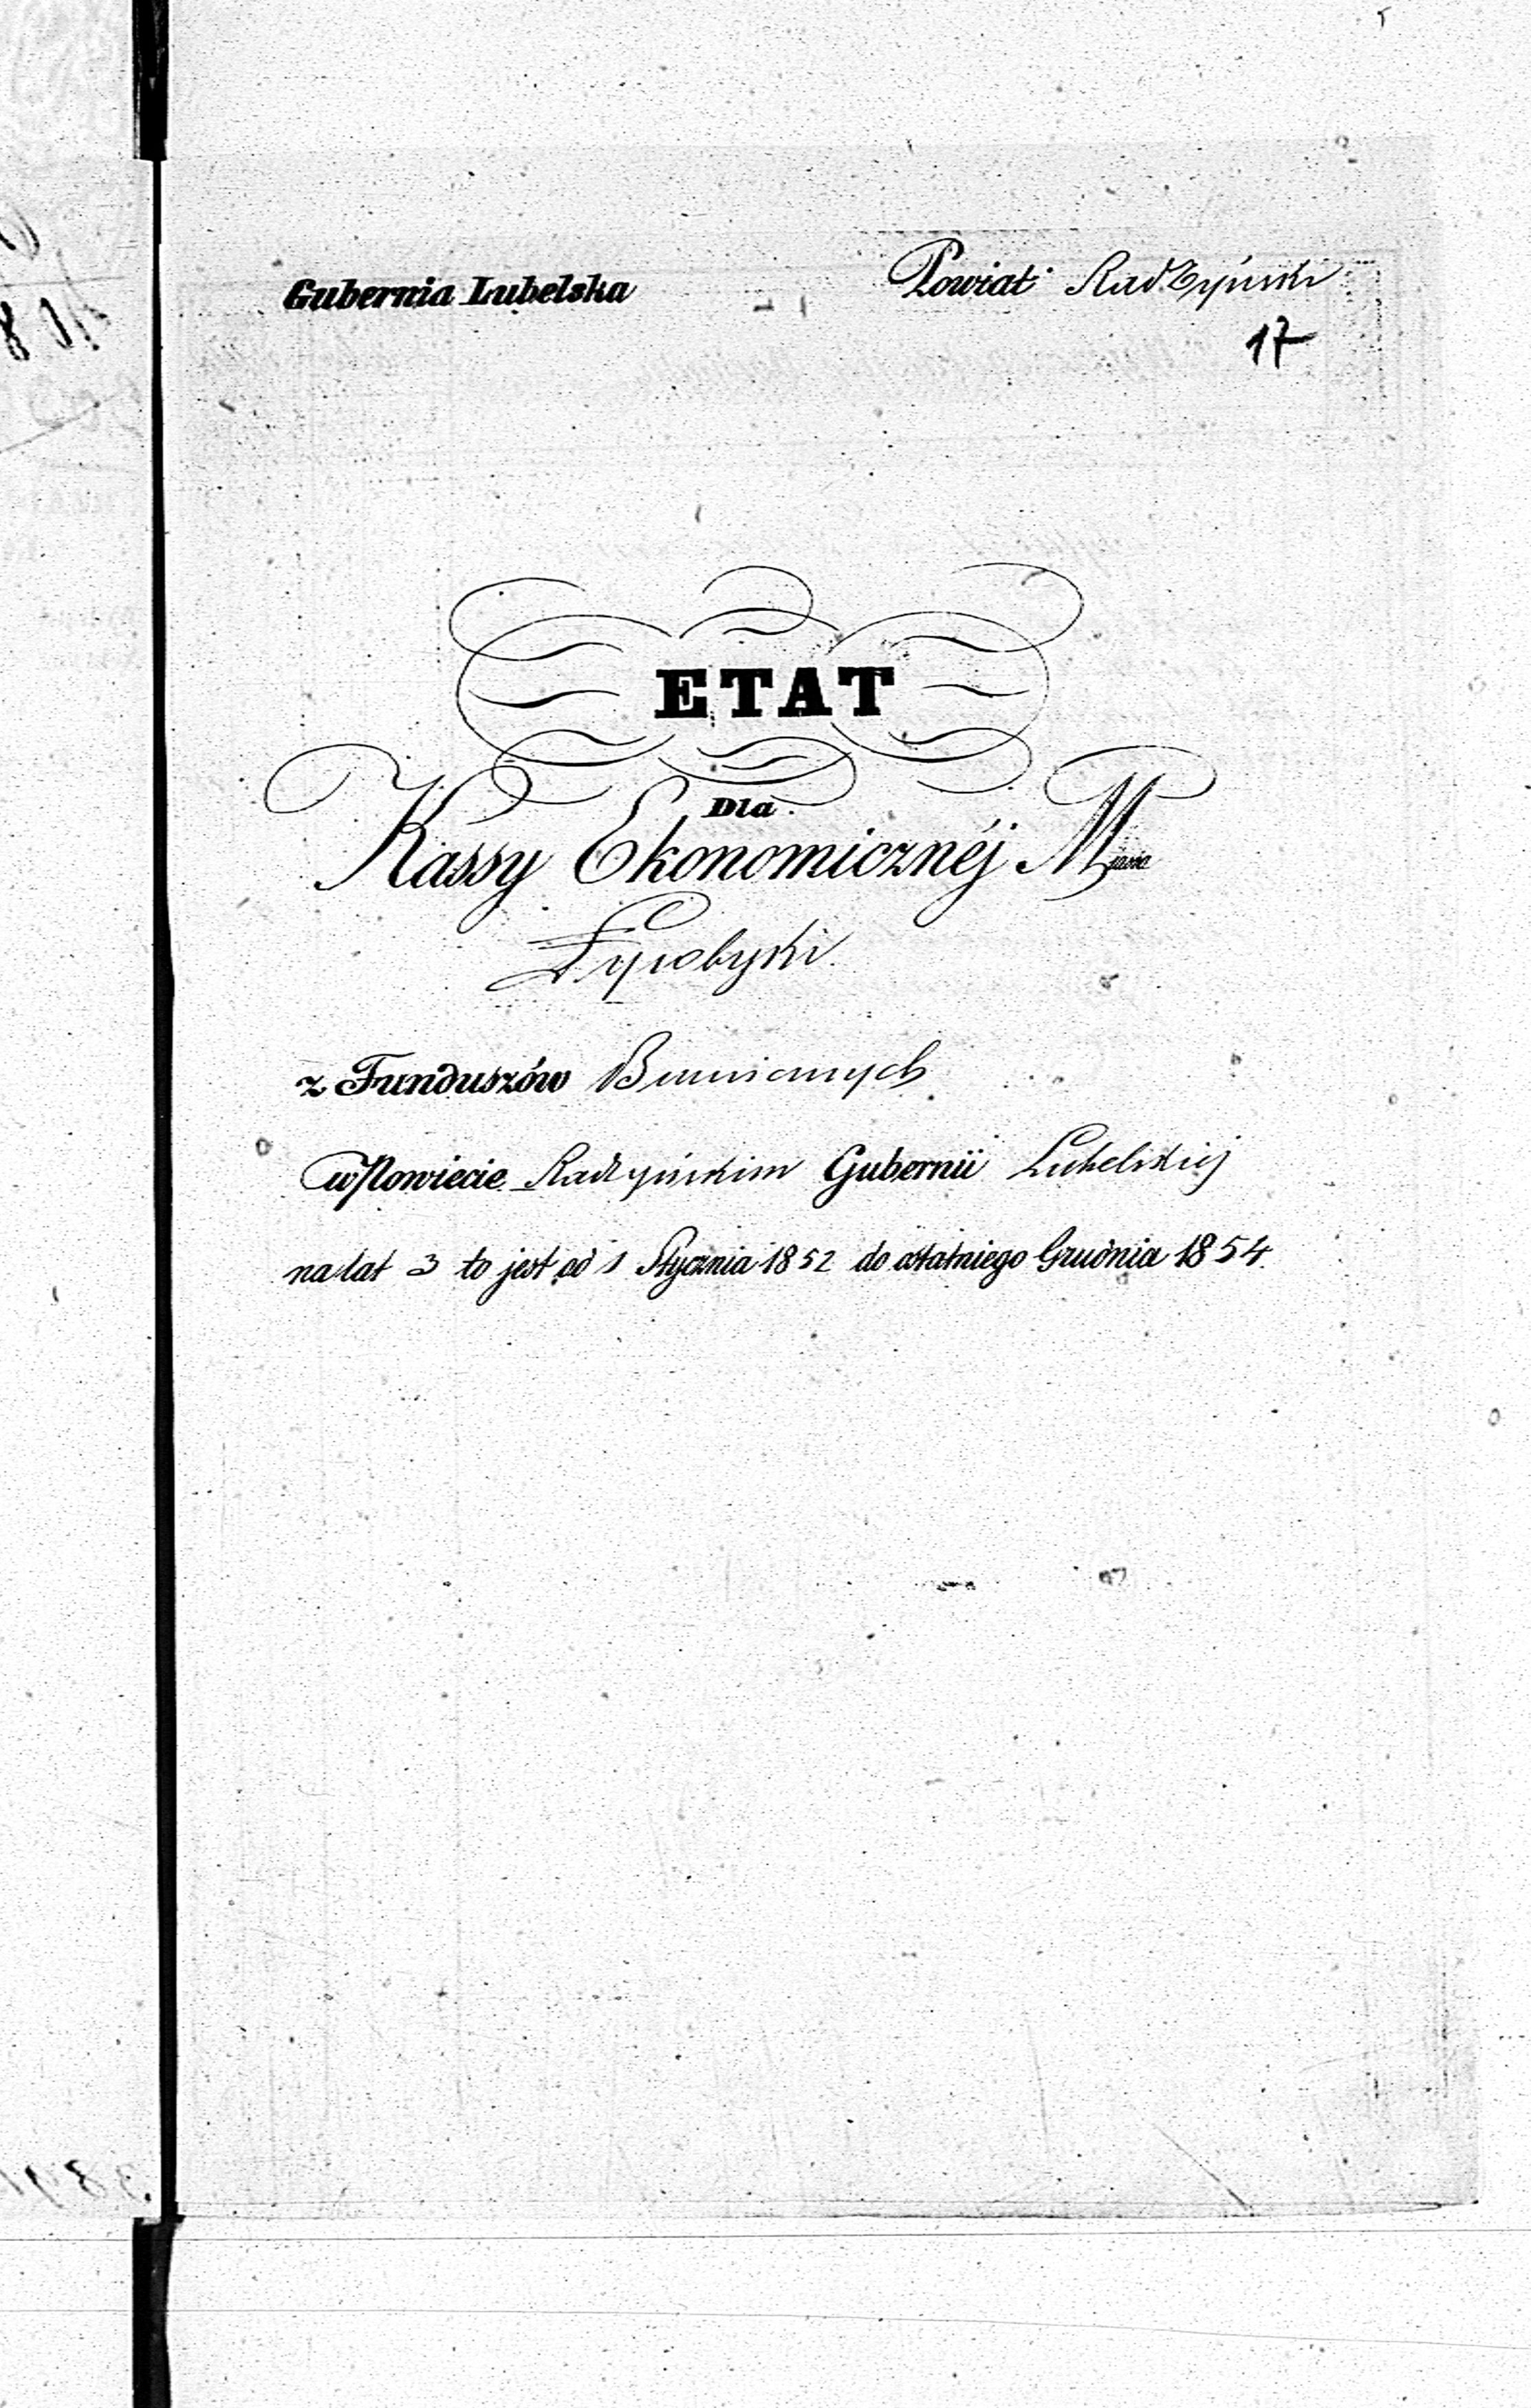 Gubernia Lubelska
Powiat Radzyński
17
ETAT
Dla
Kassy Ekonomicznéj Miasta
z Funduszów
w Powiecie Radzyńskim Gubernii Lubelskiej
na lat 3 to jest od 1 Stycznia 1852 do ostatniego Grudnia 1854.